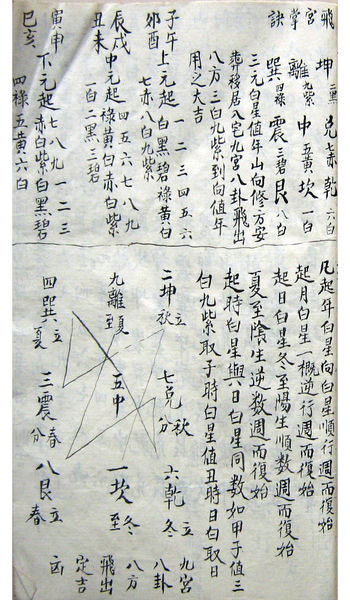 飛宮掌訣
坤二黑 兌七赤 乾六白
離九紫 中五黃 坎一白
巽四祿 震三碧 艮八白
三元白星值年山向修方安
葬移居八宅九宮八卦飛出
八方三白九紫到向值年
用之大吉
子午卯酉
上元起白黑碧祿黃白
一二三四五六
七赤八白九紫
辰戌丑未
中元起祿黃白赤白紫
四五六七八九
一白二黑三碧
寅申巳亥
下元起赤白紫白黑碧
七八九一二三
四祿五黃六白
凡起年白星向白星順行週而復始
起月白星一概逆行週而復始
起日白星冬至陽生順數週而復始
夏至陰生逆數週而復始
起時白星與日白星同數如甲子值三
白九紫取子時白星值丑時日白取日
二坤立秋 七兌秋分 六乾立冬
九離夏至 五中 一坎冬至
四巽立夏 三震春分 八艮立春
九宮八卦
八方飛出
定吉凶